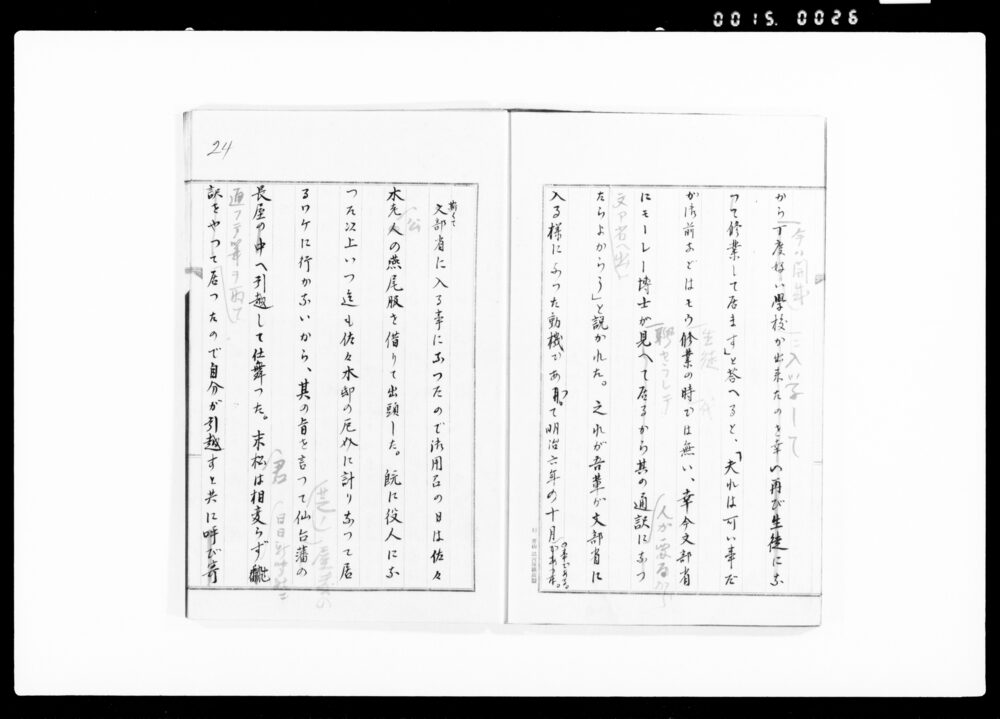 0015. 0026
から丁度好い學校が出来たのを幸ひ再び生徒にな
つて修業して居ます」と答へると、「夫れは可い事だ
が御前などはもう修業の時では無い、幸今文部省
にモーレー博士が見へて居るから其の通訳になつ
たらよからう」と説かれた。之れが吾輩が文部省に
入る様になつた動機であ
て明治六年の十月
の事である。
今の開成
に入学して
生徒
人が要るから
24
斯くて
文部省に入る事になつたので御用召の日は佐々
木老人の燕尾服を借りて出頭した。既に役人にな
つた以上いつ迄も佐々木邸の厄介に計りなつて居
るワケに行かないから、其の旨を言つて仙台藩の
長屋の中へ引越して仕舞つた。末松は相変らず飜
訳をやつて居つたので自分が引越すと共に呼び寄
公
君